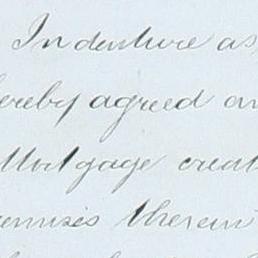 Indenture as
hereby agreed an
Mortgage creat
remises therein